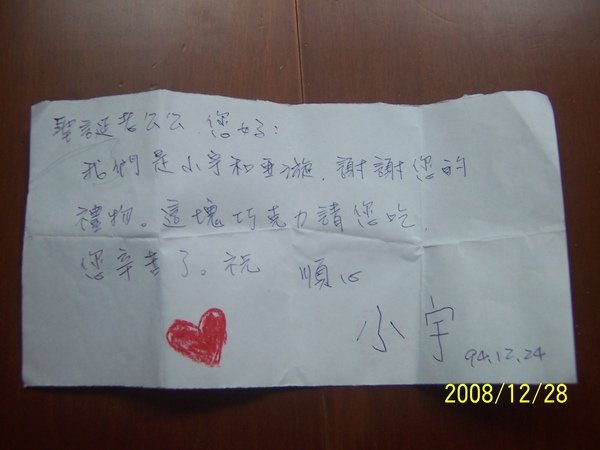 聖誕老公公、您好：
我們是小宇和亞漩，謝謝您的
禮物。這塊巧克力請您吃，
您辛苦了。祝 順心
小宇 94.12.24
2008/12/28